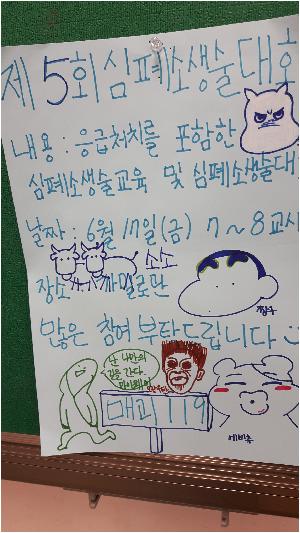 제 5회 심폐소생술 대회
내용 : 응급처치를 포함한
심폐소생술교육 및 심폐소생술대
날짜 : 6월 17일(금) 7~8교시
소소
장소 까밀로관
짱구
많은 참여 부탁드립니다
난 나만의
길을 간다.
마이웨이
매괴 119